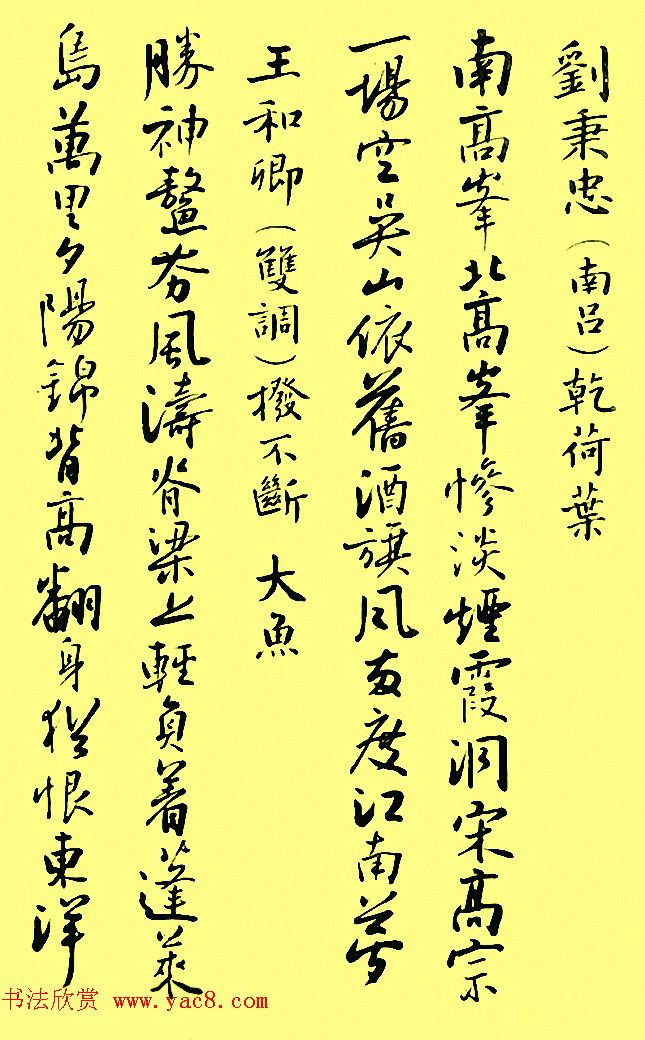 劉秉忠（南呂）乾荷葉
南高峯北高峯慘淡煙霞洞宋高宗
一場空吳山依舊酒旗風兩度江南夢
王和卿（雙調）撥不斷 大魚
勝神鼇夯風濤脊梁上輕負着蓬萊
島萬里夕陽錦背高翻身猶恨東洋
书法欣赏 www.yac8.com